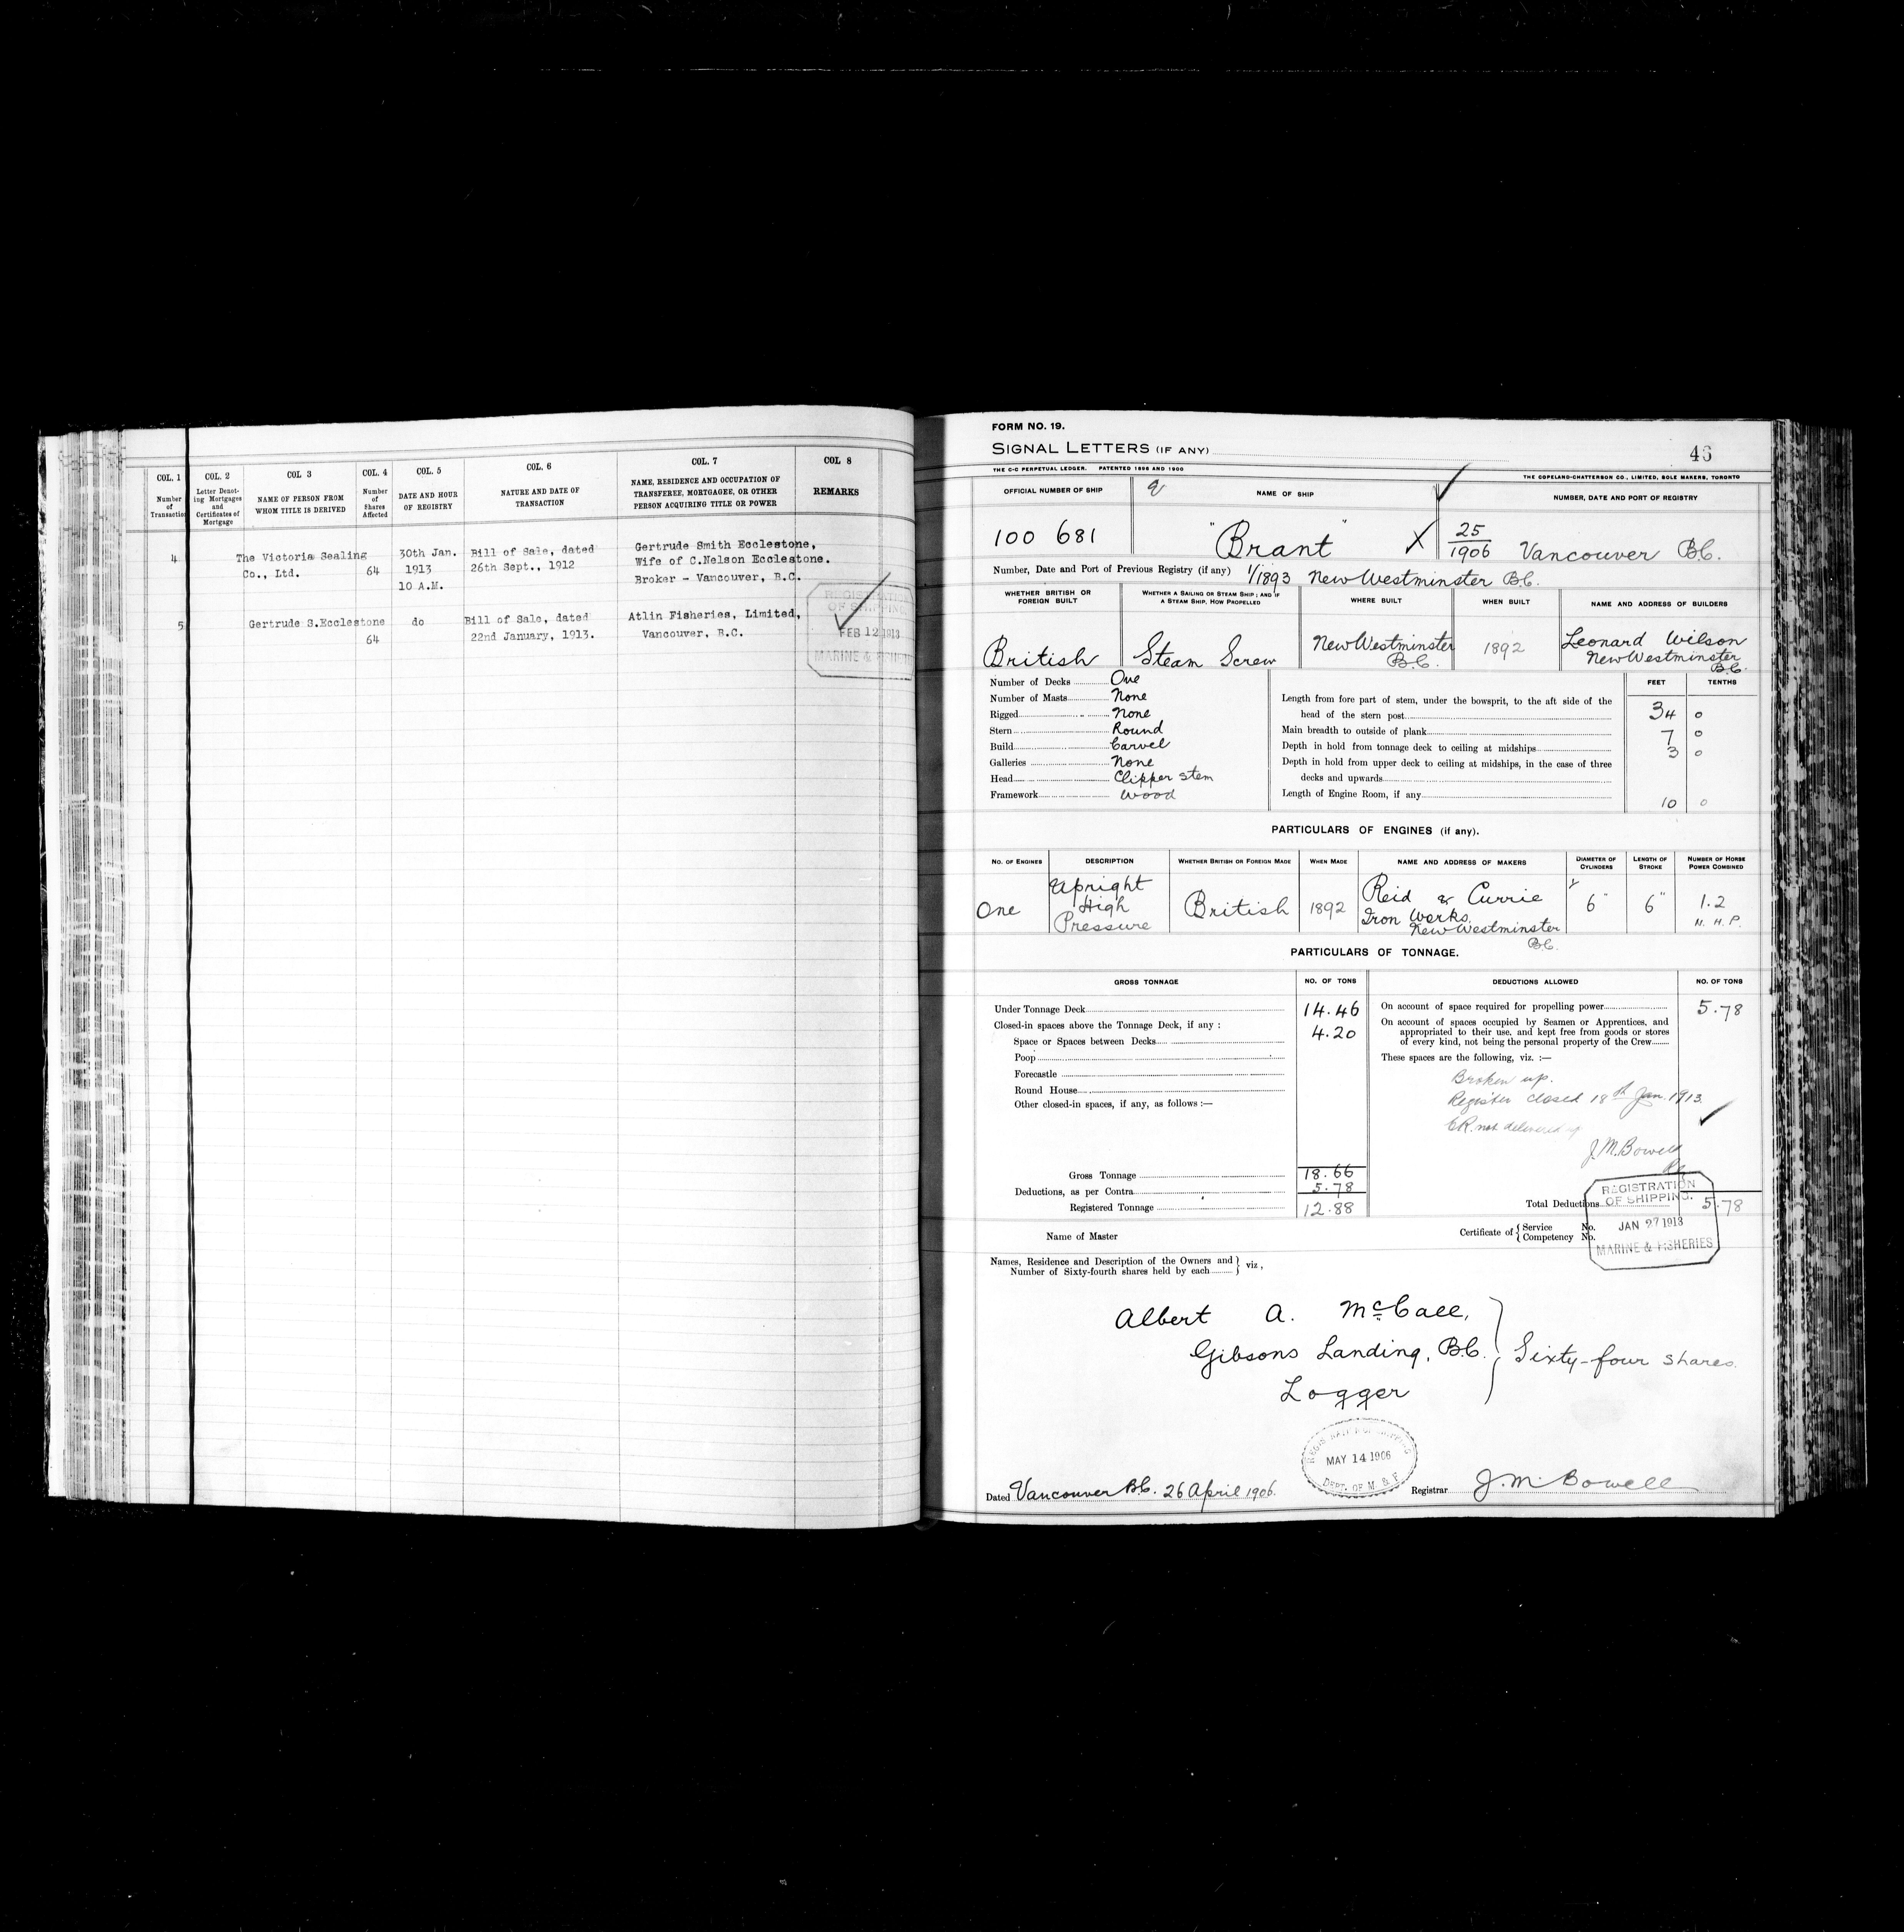 COL. 1 COL. 2 COL. 3 COL. 4 COL. 5 COL. 6 COL. 7 COL 8
Number of Transaction
Letter Denoting Mortgages and Certificates of Mortgage
NAME OF PERSON FROM WHOM TITLE IS DERIVED
Number of Shares Affected
DATE AND HOUR OF REGISTRY
NATURE AND DATE OF TRANSACTION
NAME, RESIDENCE AND OCCUPATION OF TRANSFEREE, MORTGAGEE, OR OTHER PERSON ACQUIRING TITLE OR POWER
REMARKS
4 The Victoria Sealing Co., Ltd. 64
30th Jan. 1913 10 A.M.
Bill of Sale, dated 26th Sept., 1912
Gertrude Smith Ecclestone,
Wife of C.Nelson Ecclestone.
Broker - Vancouver, B.C.
5 Gertrude S.Ecclestone 64 do
Bill of Sale, dated 22nd January, 1913.
Atlin Fisheries, Limited,
Vancouver, B.C.
REGISTRATION
OF SHIPPING
FEB 12 1913
MARINE & FISHERIES
FORM NO. 19.
SIGNAL LETTERS (IF ANY)
46
THE C-C PERPETUAL LEDGER. PATENTED 1898 AND 1900
THE COPELAND-CHATTERSON CO., LIMITED, SOLE MAKERS, TORONTO
OFFICIAL NUMBER OF SHIP NAME OF SHIP NUMBER, DATE AND PORT OF REGISTRY
100 681 "Brant" X 25/1906 Vancouver B.C.
Number, Date and Port of Previous Registry (if any) 1/1893 New Westminster B.C.
WHETHER BRITISH OR FOREIGN BUILT
WHETHER A SAILING OR STEAM SHIP; AND IF A STEAM SHIP, HOW PROPELLED
WHERE BUILT WHEN BUILT NAME AND ADDRESS OF BUILDERS
British Steam Screw New Westminster B.C. 1892 Leonard Wilson New Westminster B.C.
FEET TENTHS
Number of Decks One
Number of Masts None
Rigged None
Stern Round
Build Carvel
Galleries None
Head Clipper stem
Framework Wood
Length from fore part of stem, under the bowsprit, to the aft side of the
head of the stern post 34 0
Main breadth to outside of plank 7 0
Depth in hold from tonnage deck to ceiling at midships 3 0
Depth in hold from upper deck to ceiling at midships, in the case of three
decks and upwards
Length of Engine Room, if any 10 0
PARTICULARS OF ENGINES (if any).
NO. OF ENGINES DESCRIPTION WHETHER BRITISH OR FOREIGN MADE WHEN MADE NAME AND ADDRESS OF MAKERS DIAMETER OF CYLINDERS LENGTH OF STROKE NUMBER OF HORSE POWER COMBINED
One Upright High Pressure British 1892 Reid & Currie Iron Works, New Westminster B.C. 6" 6" 1.2 N.H.P.
PARTICULARS OF TONNAGE.
GROSS TONNAGE NO. OF TONS DEDUCTIONS ALLOWED NO. OF TONS
Under Tonnage Deck 14.46
Closed-in spaces above the Tonnage Deck, if any :
Space or Spaces between Decks 4.20
Poop
Forecastle
Round House
Other closed-in spaces, if any, as follows :—
Gross Tonnage 18.66
Deductions, as per Contra 5.78
Registered Tonnage 12.88
On account of space required for propelling power 5.78
On account of spaces occupied by Seamen or Apprentices, and
appropriated to their use, and kept free from goods or stores
of every kind, not being the personal property of the Crew
These spaces are the following, viz. :—
Broken up.
Register closed 18th Jan. 1913
CR. not delivered up
J.M. Bowell
Total Deductions 5.78
REGISTRATION
OF SHIPPING.
JAN 27 1913
MARINE & FISHERIES
Name of Master
Certificate of { Service No.
Competency No.
Names, Residence and Description of the Owners and
Number of Sixty-fourth shares held by each } viz,
Albert A. McCall,
Gibsons Landing, B.C. } Sixty-four shares.
Logger
REGISTRATION OF SHIPPING
MAY 14 1906
DEPT. OF M & F
Dated Vancouver B.C. 26 April 1906. Registrar J.M. Bowell